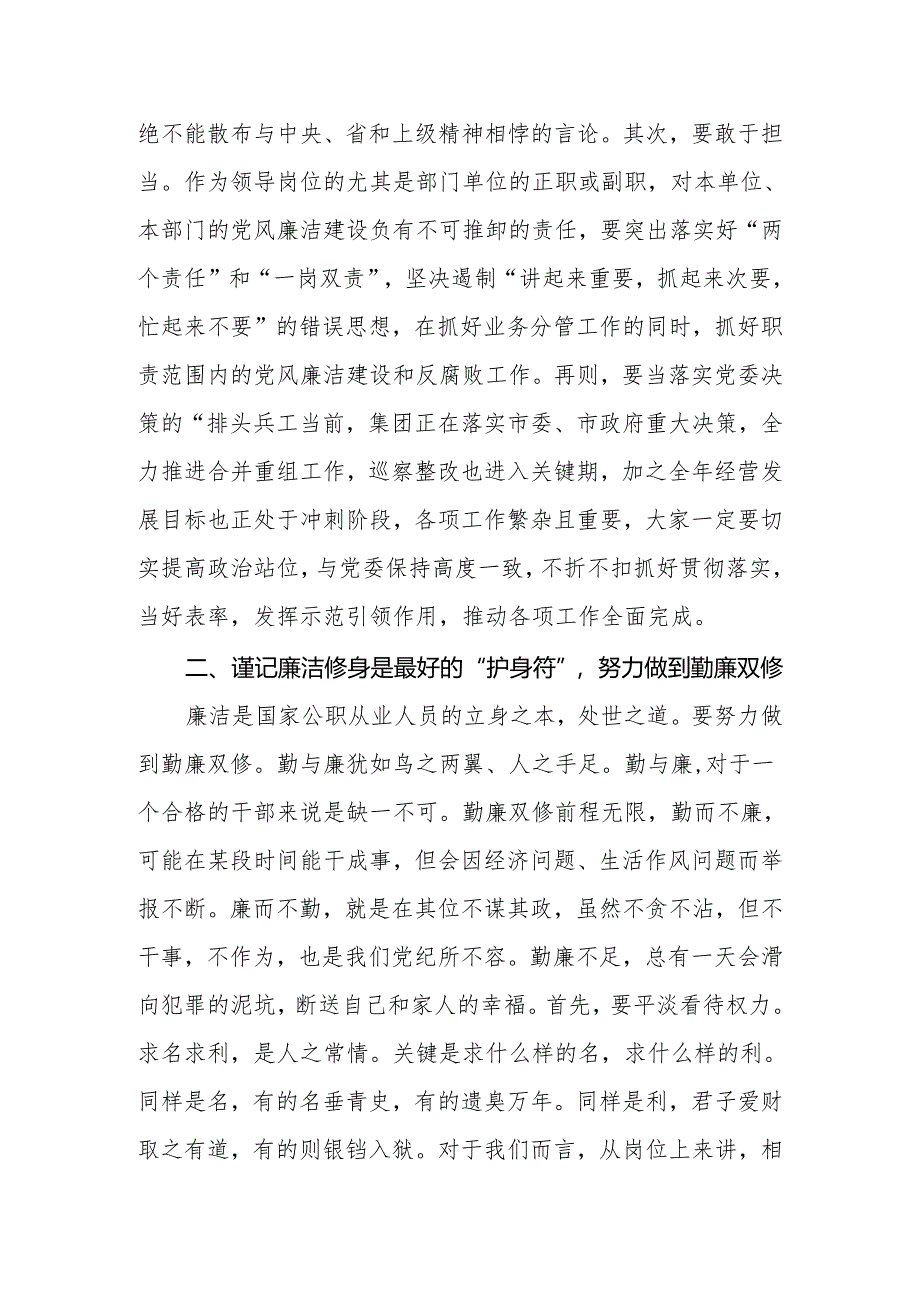 绝不能散布与中央、省和上级精神相悖的言论。其次，要敢于担
当。作为领导岗位的尤其是部门单位的正职或副职，对本单位、
本部门的党风廉洁建设负有不可推卸的责任，要突出落实好“两
个责任”和“一岗双责”，坚决遏制“讲起来重要，抓起来次要，
忙起来不要”的错误思想，在抓好业务分管工作的同时，抓好职
责范围内的党风廉洁建设和反腐败工作。再则，要当落实党委决
策的“排头兵工当前，集团正在落实市委、市政府重大决策，全
力推进合并重组工作，巡察整改也进入关键期，加之全年经营发
展目标也正处于冲刺阶段，各项工作繁杂且重要，大家一定要切
实提高政治站位，与党委保持高度一致，不折不扣抓好贯彻落实，
当好表率，发挥示范引领作用，推动各项工作全面完成。
二、谨记廉洁修身是最好的“护身符”，努力做到勤廉双修
廉洁是国家公职从业人员的立身之本，处世之道。要努力做
到勤廉双修。勤与廉犹如鸟之两翼、人之手足。勤与廉,对于一
个合格的干部来说是缺一不可。勤廉双修前程无限，勤而不廉，
可能在某段时间能干成事，但会因经济问题、生活作风问题而举
报不断。廉而不勤，就是在其位不谋其政，虽然不贪不沾，但不
干事，不作为，也是我们党纪所不容。勤廉不足，总有一天会滑
向犯罪的泥坑，断送自己和家人的幸福。首先，要平淡看待权力。
求名求利，是人之常情。关键是求什么样的名，求什么样的利。
同样是名，有的名垂青史，有的遗臭万年。同样是利，君子爱财
取之有道，有的则银铛入狱。对于我们而言，从岗位上来讲，相